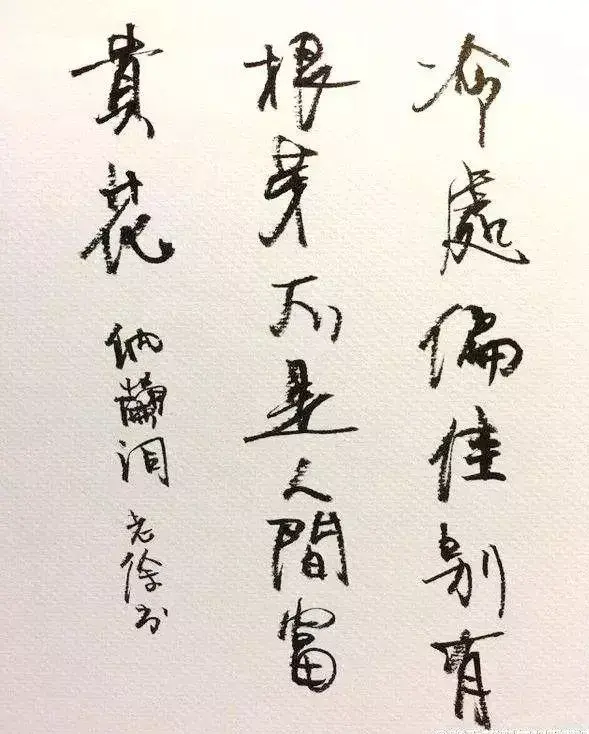 冷處偏佳别有
根芽不是人間富
貴花
納蘭詞 老徐书